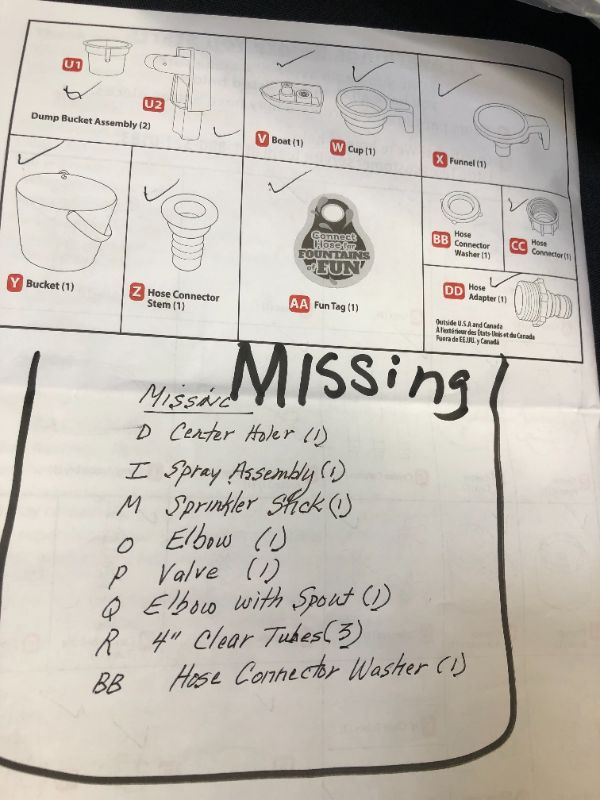 U1
U2
Dump Bucket Assembly (2)
V Boat (1)
W Cup (1)
X Funnel (1)
Y Bucket (1)
Z Hose Connector
Stem (1)
Connect
Hose for
FOUNTAINS
of FUN
AA Fun Tag (1)
BB Hose
Connector
Washer (1)
CC Hose
Connector (1)
DD Hose
Adapter (1)
Outside U.S.A and Canada
A l'extérieur des États-Unis et du Canada
Fuera de EE.UU. y Canadá
MISSing
Missing
D Center Holer (1)
I Spray Assembly (1)
M Sprinkler Stick (1)
O Elbow (1)
P Valve (1)
Q Elbow with Spout (1)
R 4" Clear Tubes (3)
BB Hose Connector Washer (1)